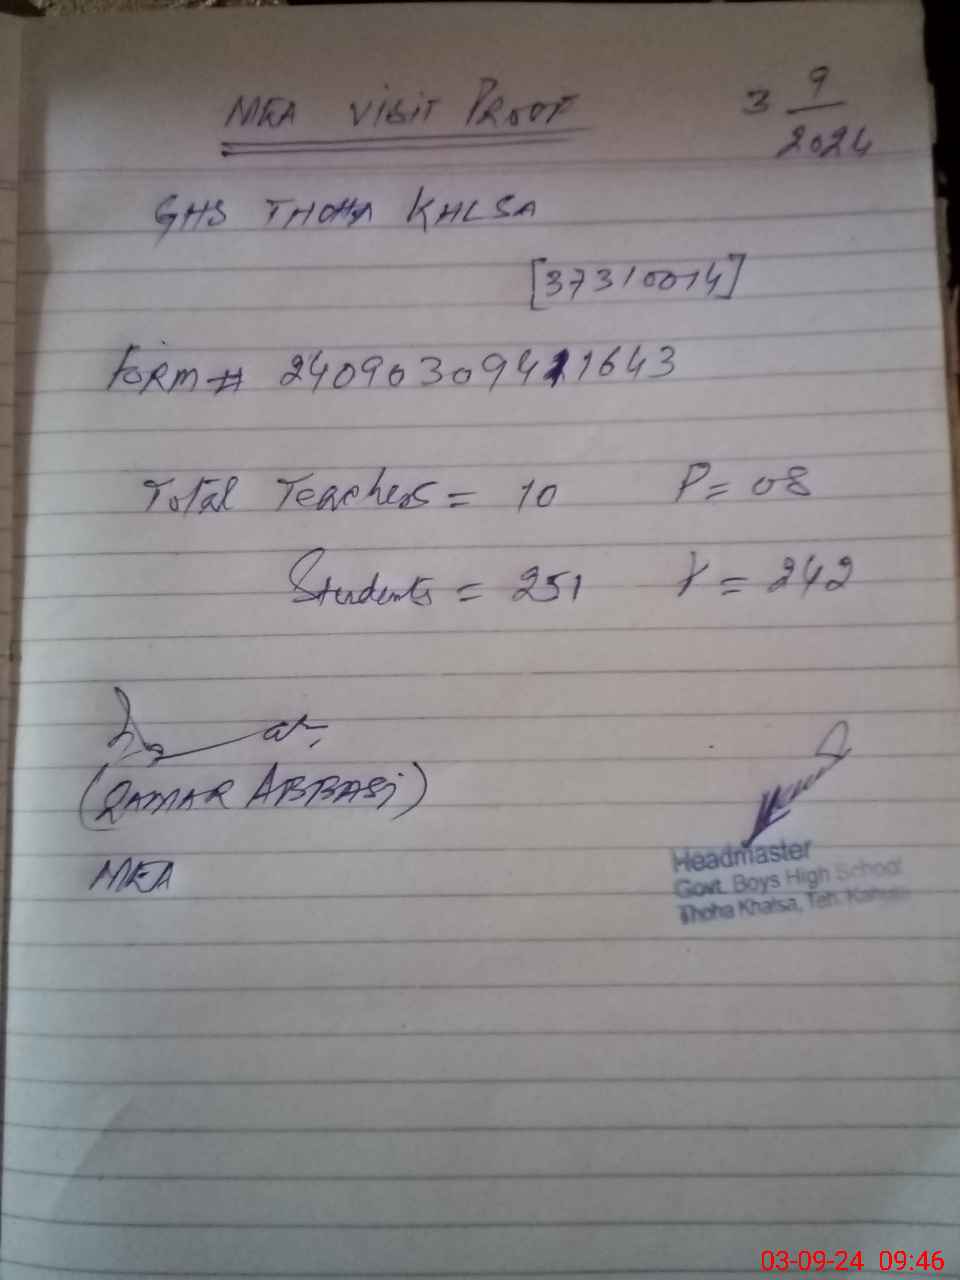 MEA Visit Proof
3 9/2024
GHS THOHA KHLSA
[37310014]
Form # 24090309411643
Total Teachers = 10 P = 08
Students = 251 P = 242
(QAMAR ABBASi)
MEA
Headmaster
Govt. Boys High School
Thoha Khalsa, Teh.
03-09-24 09:46